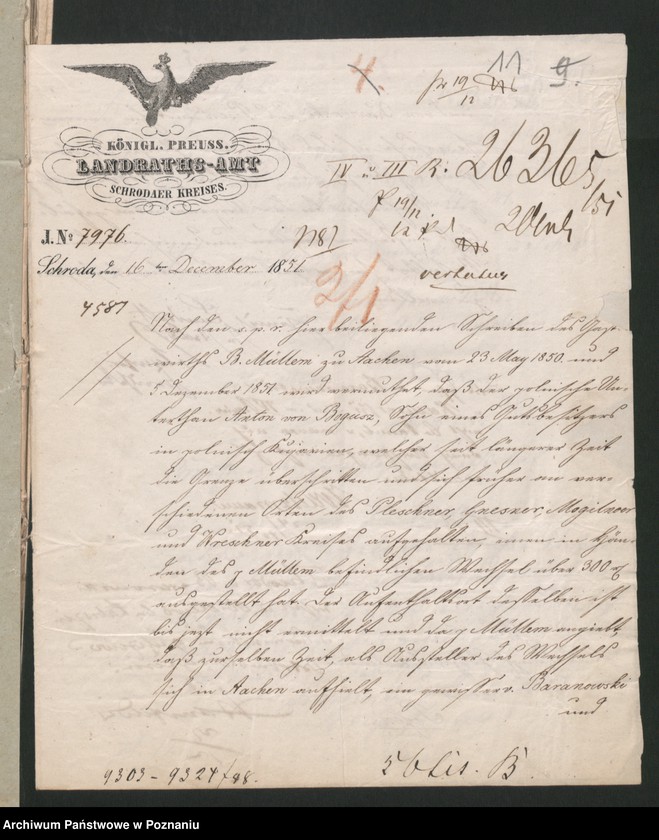 4.
11
9.
pr 19/12
KÖNIGL. PREUSS.
LANDRATHS-AMT
SCHRODAER KREISES.
IV u III R. 26365/51
19/12
J. No 7976.
Schroda, den 16ten December 1851
2/1
4587
Nach den s. p. r. hier beiliegenden Schreiben des Gast-
wirths B. Müllem zu Aachen vom 23 May 1850 und
5 Dezember 1851 wird vermuthet, daß der polnische Un-
terthan Anton von Bogusz, Sohn eines Gutsbesitzers
in polnisch Kujavien, welcher seit längerer Zeit
die Grenze überschritten und sich früher an ver-
schiedenen Orten des Pleschner, Gnesner, Mogilnoer
und Wreschner Kreises aufgehalten, einen in Hän-
den des p Müllem befindlichen Wechsel über 300
ausgestellt hat. Der Aufenthaltsort desselben ist
bis jezt nicht ermittelt und da p Müllem angiebt,
daß zu derselben Zeit, als Aussteller des Wechsels
sich in Aachen aufhielt, ein gewisser v. Baranowski
und
9303 - 9324/88.
Archiwum Państwowe w Poznaniu